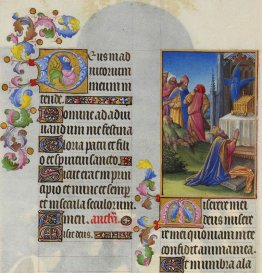 Deus in ad
iutorium
meum in
tende.
Domine ad adiu
uandum me festina
Gloria patri et fili
o et spiritui sancto.
Sicut erat in prin
cipio et nunc et semp
et in secula seculorum.
Amen. ant'
Miserere mei
deus misere
re mei quoniam in te
confidit anima mea.
Et in umbra ala